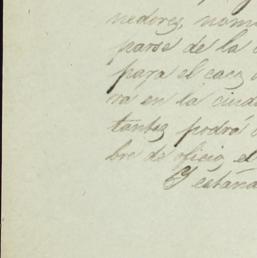 nedores, nom
parse de la
para el caso
ra en la ciud
tantes podrá
bre de oficio, el
Y estand